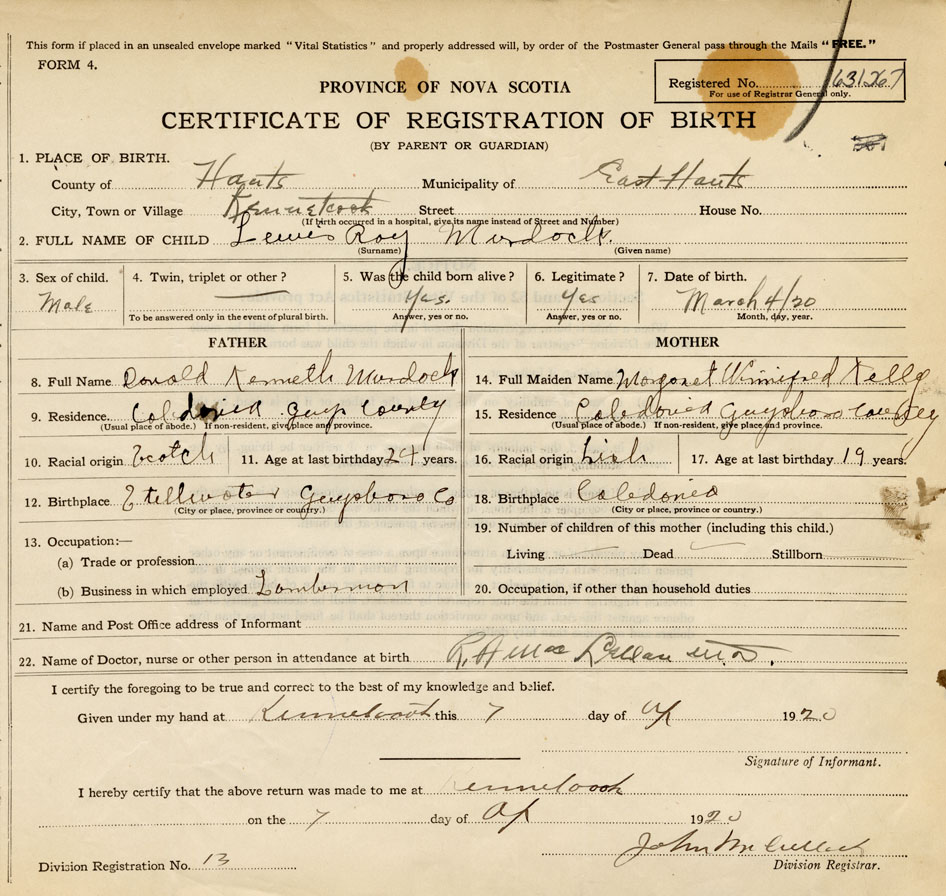 This form if placed in an unsealed envelope marked "Vital Statistics" and properly addressed will, by order of the Postmaster General pass through the Mails "FREE."
FORM 4.
Registered No. 631267
For use of Registrar General only.
PROVINCE OF NOVA SCOTIA
CERTIFICATE OF REGISTRATION OF BIRTH
(BY PARENT OR GUARDIAN)
1. PLACE OF BIRTH.
County of Hants Municipality of East Hants
City, Town or Village Kennetcook Street House No.
(If birth occurred in a hospital, give its name instead of Street and Number)
2. FULL NAME OF CHILD Lewis Roy Murdock.
(Surname) (Given name)
3. Sex of child. 4. Twin, triplet or other? 5. Was the child born alive? 6. Legitimate? 7. Date of birth.
Male Yes. Yes March 4/20
To be answered only in the event of plural birth. Answer, yes or no. Answer, yes or no. Month, day, year.
FATHER MOTHER
8. Full Name Donald Kenneth Murdock 14. Full Maiden Name Margaret Winnifred Kelly
9. Residence. Caledonia Guys County 15. Residence Caledonia Guysboro County
(Usual place of abode.) If non-resident, give place and province. (Usual place of abode.) If non-resident, give place and province.
10. Racial origin Scotch 11. Age at last birthday 24 years. 16. Racial origin Irish 17. Age at last birthday 19 years.
12. Birthplace Stillwater Guysboro Co 18. Birthplace Caledonia
(City or place, province or country.) (City or place, province or country.)
19. Number of children of this mother (including this child.)
13. Occupation:—
Living Dead Stillborn
(a) Trade or profession
(b) Business in which employed Lumberman 20. Occupation, if other than household duties
21. Name and Post Office address of Informant
22. Name of Doctor, nurse or other person in attendance at birth R. A Mac Lellan M.D.
I certify the foregoing to be true and correct to the best of my knowledge and belief.
Given under my hand at Kennetcook this 7 day of Ap 1920
Signature of Informant.
I hereby certify that the above return was made to me at Kennetcook
on the 7 day of Ap 1920
John McCulloch
Division Registration No. 13 Division Registrar.